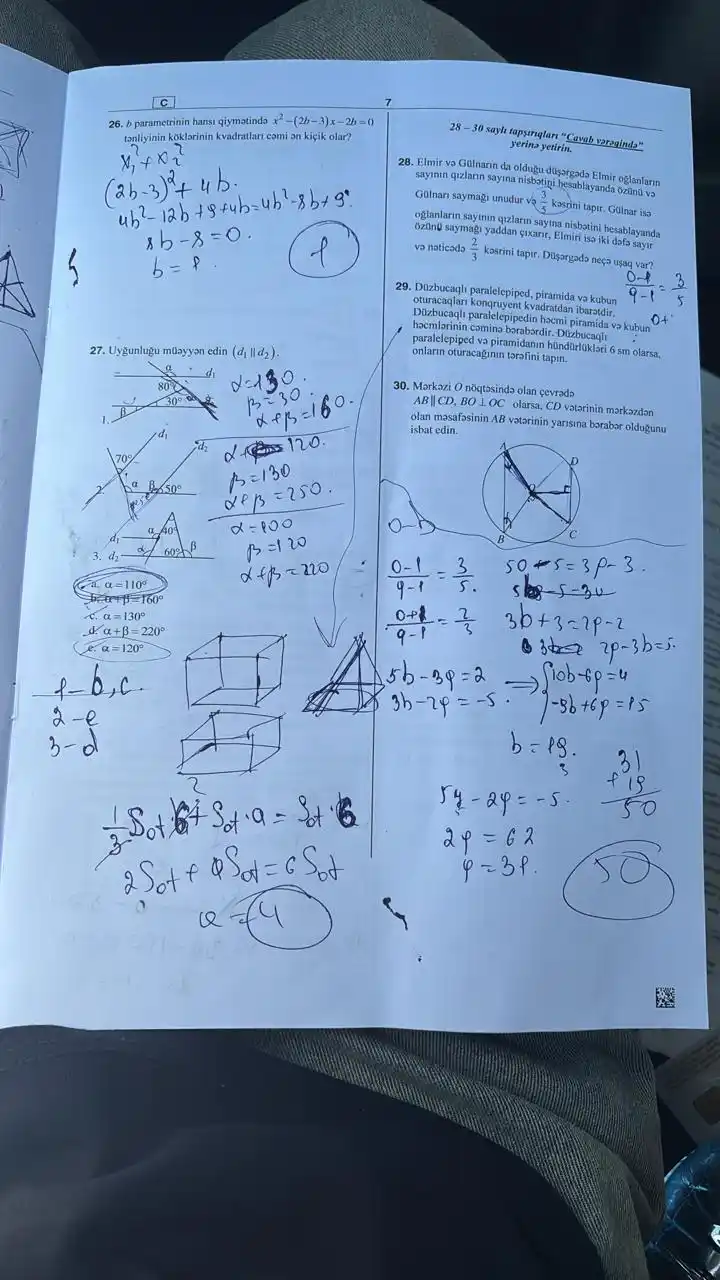 C
7
26. b parametrinin hansı qiymətində x² −(2b−3)x−2b=0
tənliyinin köklərinin kvadratları cəmi ən kiçik olar?
x₁² + x₂²
(2b-3)² + 4b.
4b²-12b+9+4b=4b²-8b+9
8b-8=0.
b=1.
1
27. Uyğunluğu müəyyən edin (d₁ ∥ d₂).
α
d₁
80°
30°
β
1.
α=130.
β=30.
α+β=160.
d₁
d₂
70°
α
β
50°
2.
120.
β=130
α+β=250.
α
40°
d₁
60°
β
3. d₂
α=100
β=120
α+β=220
a. α=110°
b. α+β=160°
c. α=130°
d. α+β=220°
e. α=120°
1-b,c.
2-e
3-d
2Sot + aSot = 6Sot
a=4
28 – 30 saylı tapşırıqları “Cavab vərəqində”
yerinə yetirin.
28. Elmir və Gülnarın da olduğu düşərgədə Elmir oğlanların
sayının qızların sayına nisbətini hesablayanda özünü və
Gülnarı saymağı unudur və 3/5 kəsrini tapır. Gülnar isə
oğlanların sayının qızların sayına nisbətini hesablayanda
özünü saymağı yaddan çıxarır, Elmiri isə iki dəfə sayır
və nəticədə 2/3 kəsrini tapır. Düşərgədə neçə uşaq var?
29. Düzbucaqlı paralelepiped, piramida və kubun
oturacaqları konqruyent kvadratdan ibarətdir.
Düzbucaqlı paralelepipedin həcmi piramida və kubun
həcmlərinin cəminə bərabərdir. Düzbucaqlı
paralelepiped və piramidanın hündürlükləri 6 sm olarsa,
onların oturacağının tərəfini tapın.
30. Mərkəzi O nöqtəsində olan çevrədə
AB∥CD, BO⊥OC olarsa, CD vətərinin mərkəzdən
olan məsafəsinin AB vətərinin yarısına bərabər olduğunu
isbat edin.
A
D
B
C
3b-2q=-5.
b=19.
31
+19
50
2q=62
q=31.
50